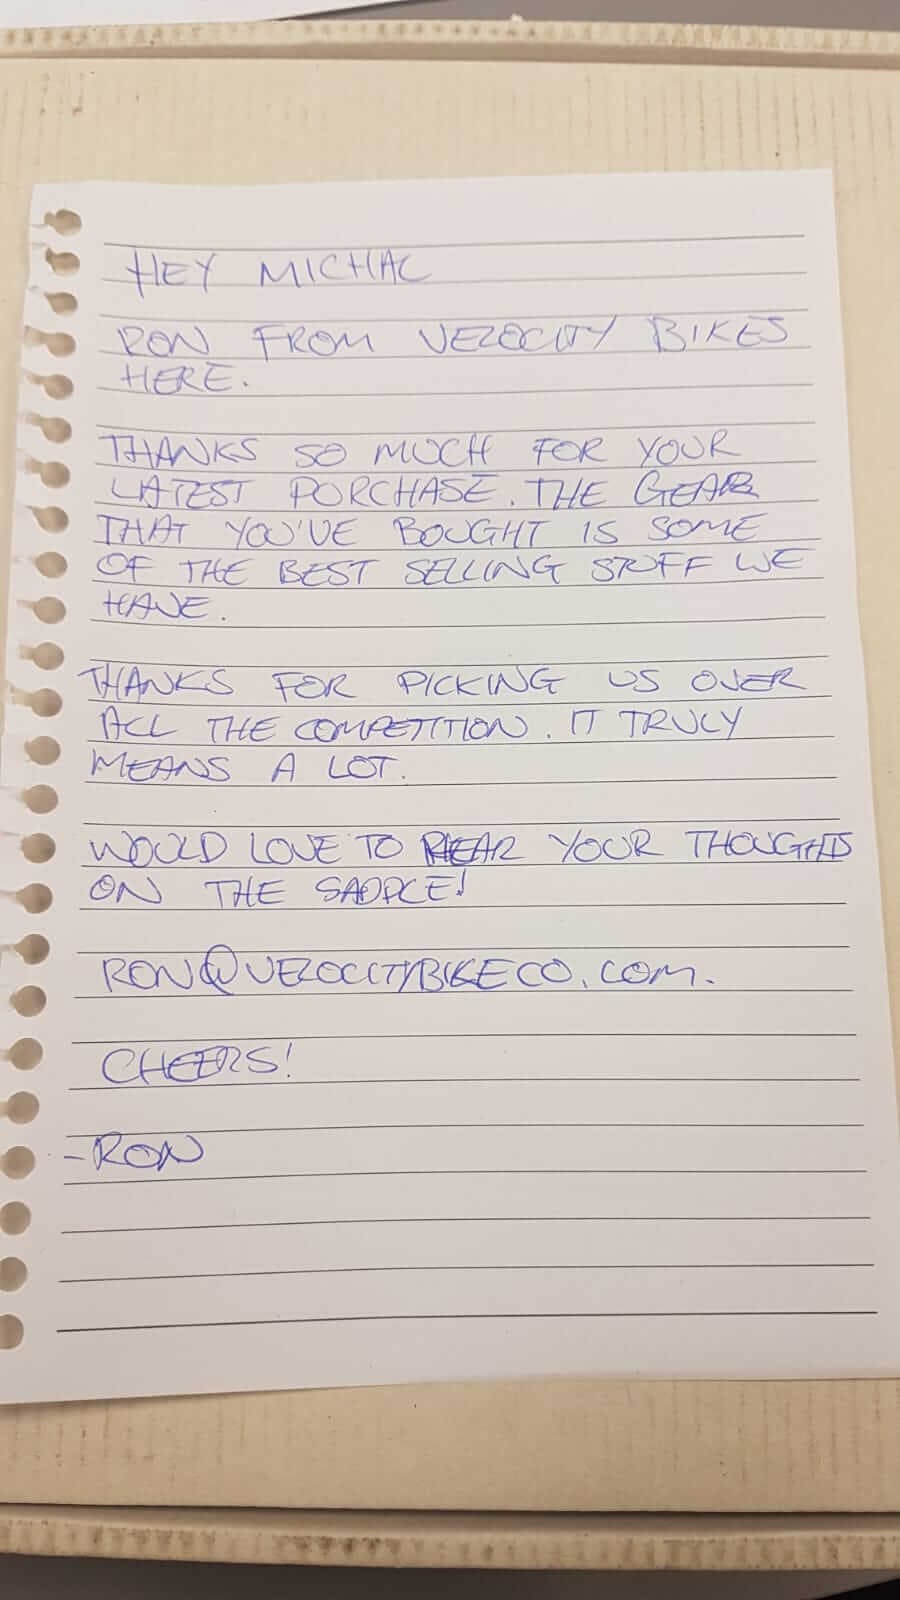 HEY MICHAL
RON FROM VELOCITY BIKES
HERE.
THANKS SO MUCH FOR YOUR
LATEST PURCHASE. THE GEAR
THAT YOU'VE BOUGHT IS SOME
OF THE BEST SELLING STUFF WE
HAVE.
THANKS FOR PICKING US OVER
ALL THE COMPETITION. IT TRULY
MEANS A LOT.
WOULD LOVE TO HEAR YOUR THOUGHTS
ON THE SADDLE!
RON@VELOCITYBIKECO.COM.
CHEERS!
-RON